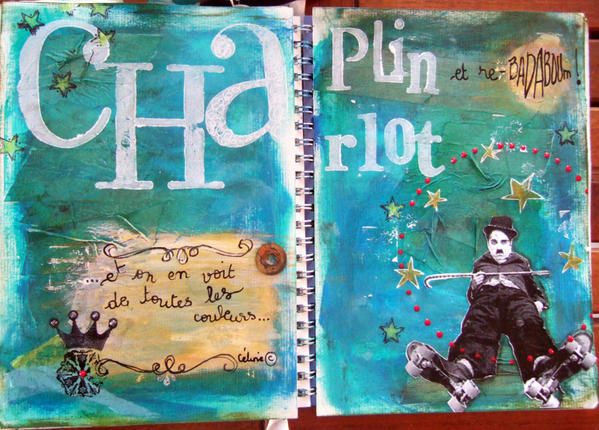 CHa
Plin
et re-BADABOUM!
rlot
...et on en voit
de toutes les
couleurs...
Céline ©